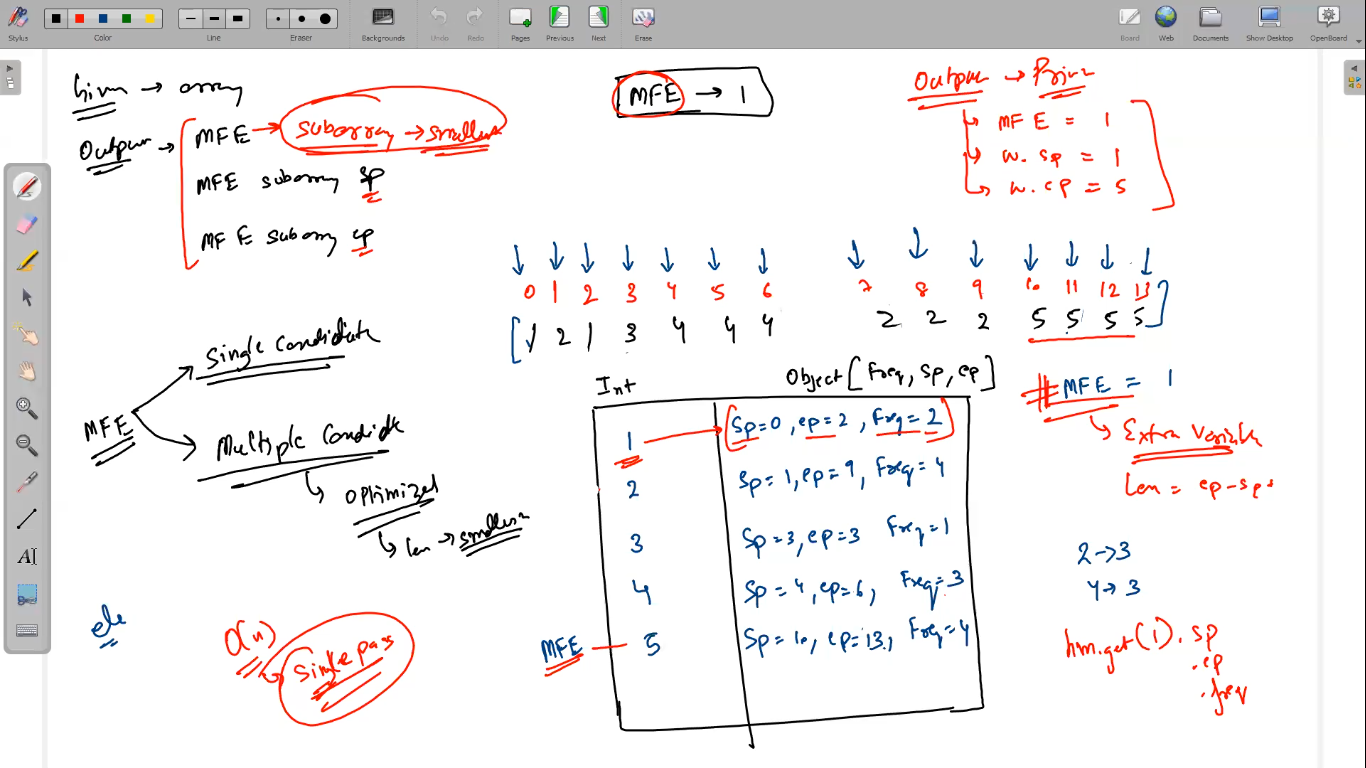 Stylus
Color
Line
Eraser
Backgrounds
Undo
Redo
Pages
Previous
Next
Erase
Board
Web
Documents
Show Desktop
OpenBoard
Given → array
Output →
MFE → subarray → smallest
MFE subarray sp
MFE subarray ep
MFE → 1
Output → Print
MFE = 1
w. sp = 1
w. ep = 5
0 1 2 3 4 5 6 7 8 9 10 11 12 13
[1 2 1 3 4 4 4 2 2 2 5 5 5 5]
MFE
Single Candidate
Multiple Candidate
optimized
len → smallest
ele
O(n)
Single pass
Int
Object [Freq, sp, ep]
1 → Sp=0, ep=2, Freq=2
2 Sp=1, ep=9, Freq=4
3 Sp=3, ep=3 Freq=1
4 Sp=4, ep=6, Freq=3
MFE — 5 Sp=10, ep=13, Freq=4
MFE = 1
Extra Variable
len = ep-sp+
2→3
4→3
hm.get(1).sp
.ep
.freq